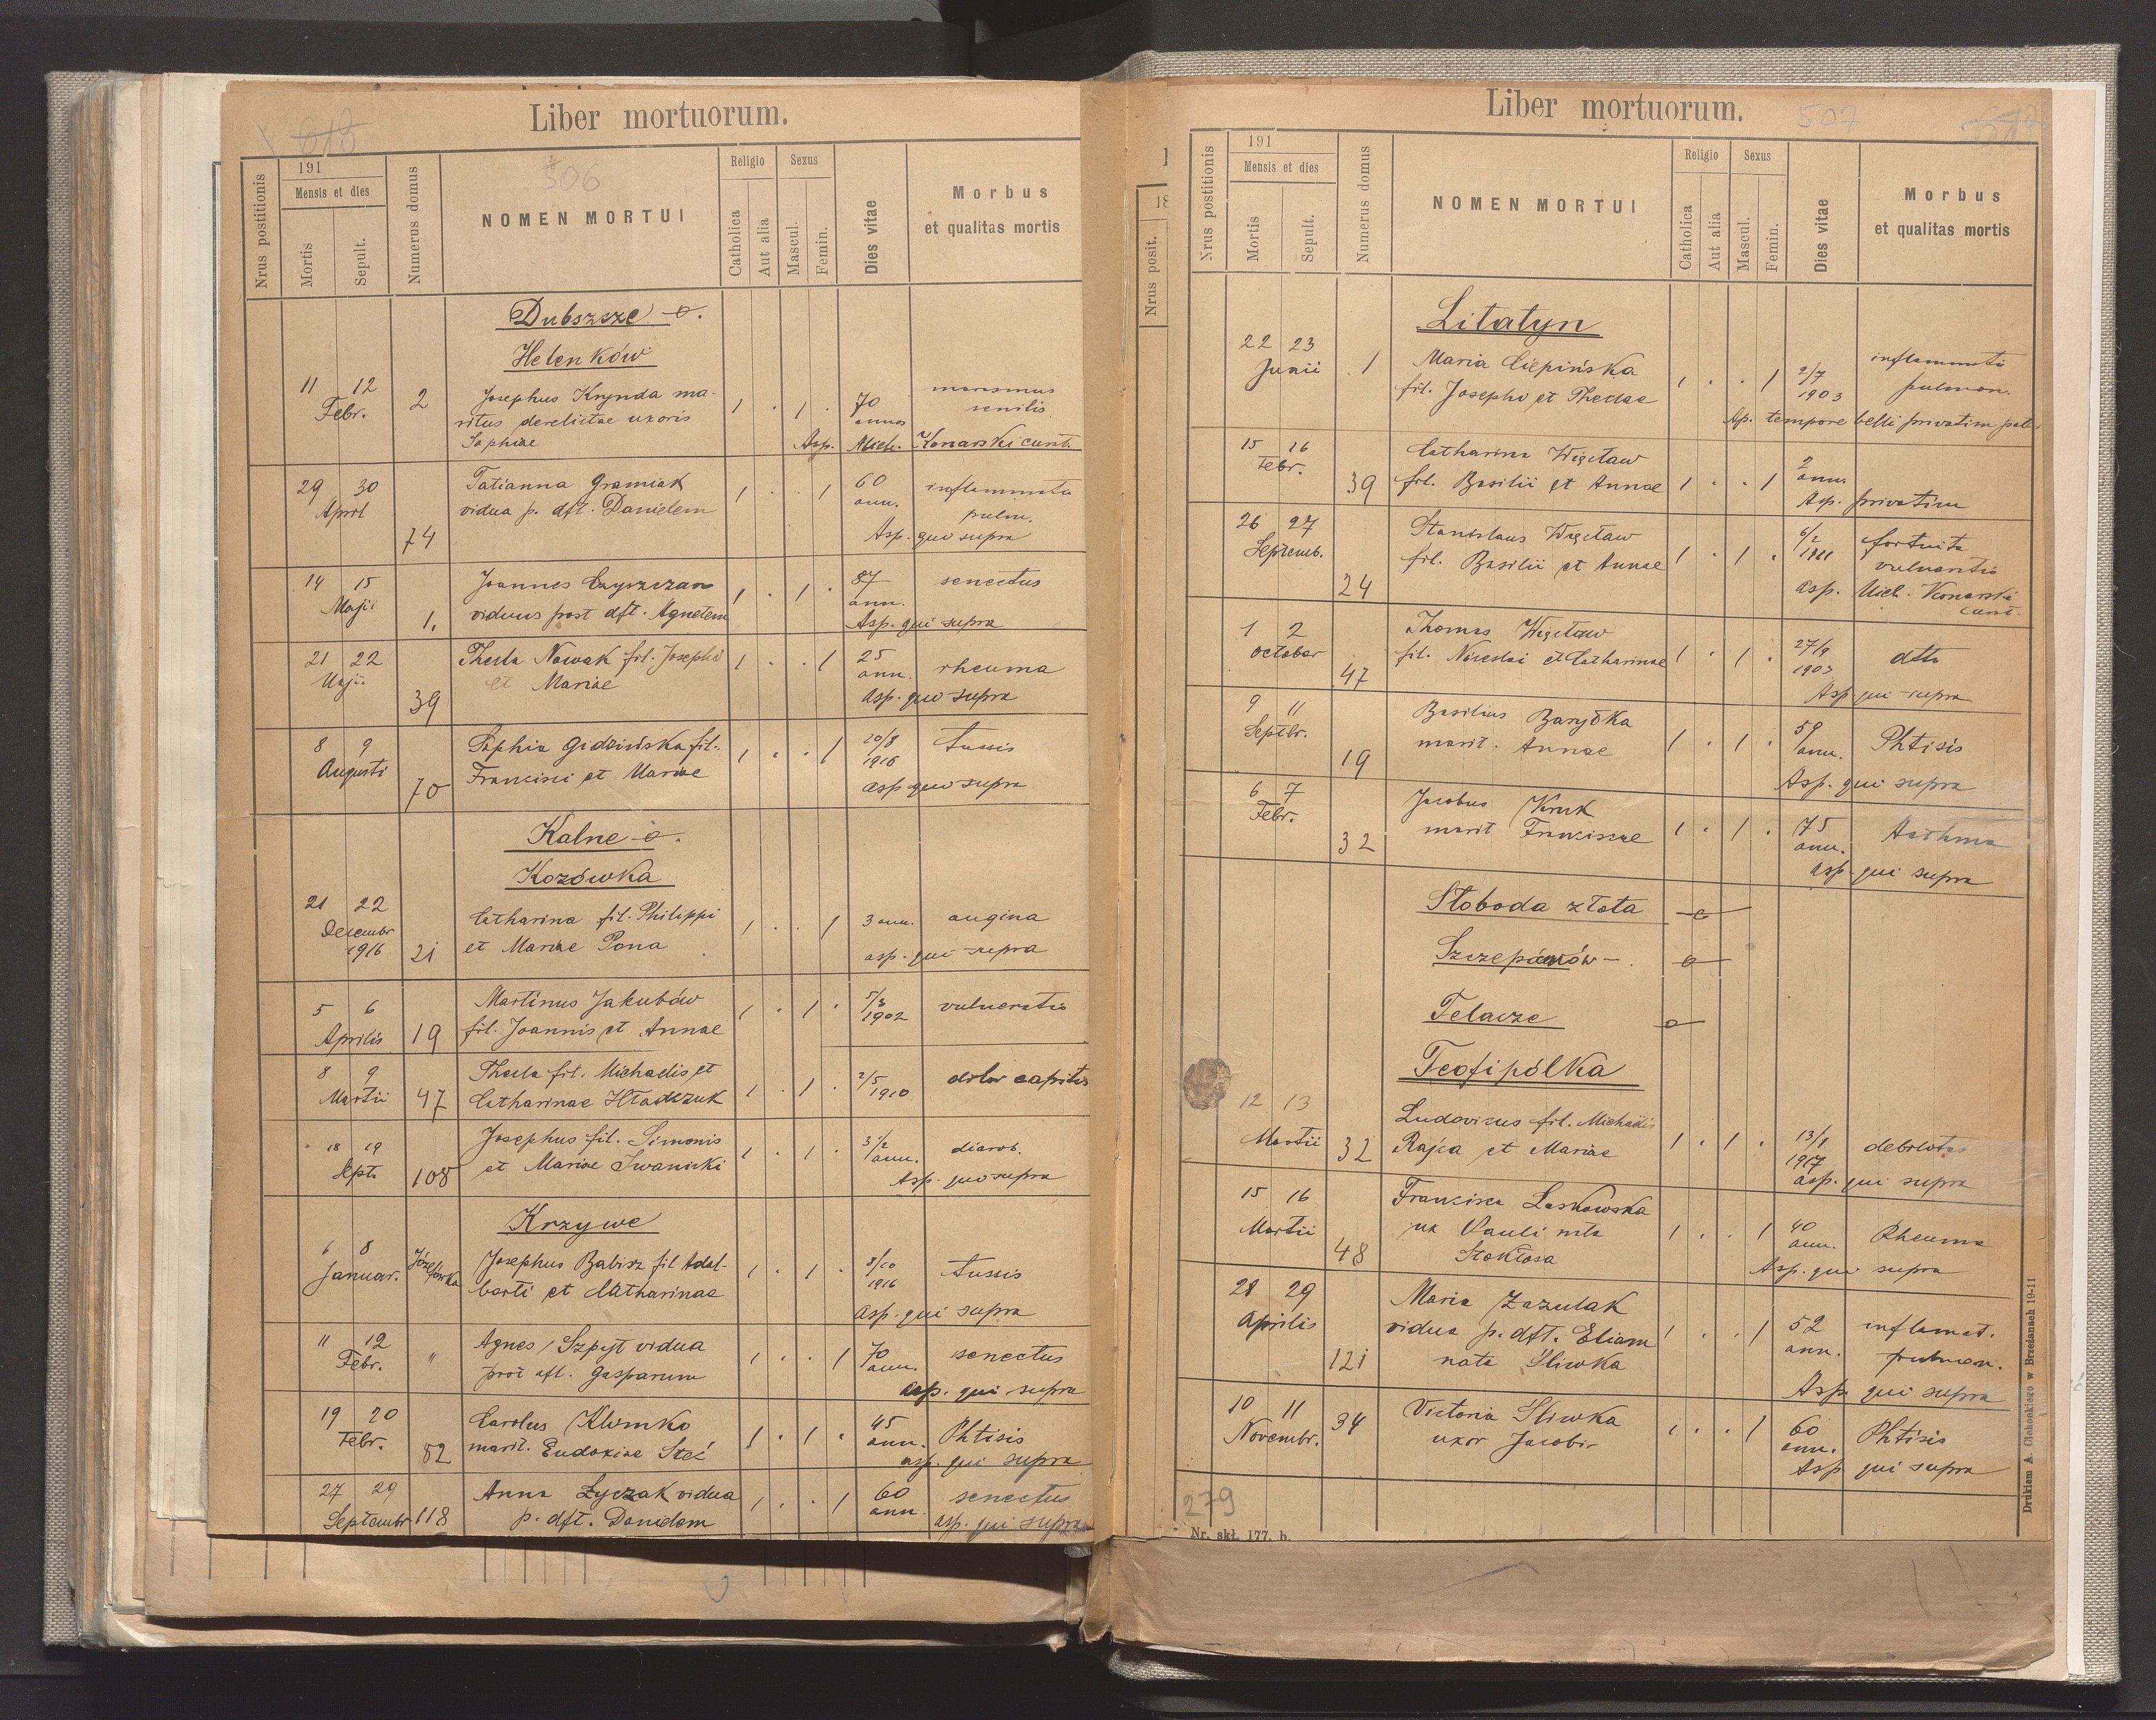 Liber mortuorum.
618
306
Nrus postitionis
191
Mensis et dies
Mortis
Sepult.
Numerus domus
NOMEN MORTUI
Religio
Catholica
Aut alia
Sexus
Mascul.
Femin.
Dies vitae
Morbus
et qualitas mortis
Dubszsze
Helenków
11 12
Febr.
2
Josephus Krynda ma-
ritus derelictae uxoris
Sophiae
1 . 1 .
70
annos
marasmus
senilis
Asp. Mich. Konarski
29 30
April
74
Tatianna Gramiak
vidua p. dft. Danielem
1 . . 1
60
ann.
inflammatio
pulm.
Asp. quo supra
14 15
Maji
1.
Joannes
viduus post dft. Agnetem
1 . 1 .
87
ann.
senectus
Asp. qui supra
21 22
Maji
39
Thecla Nowak fil. Josephi
et Mariae
1 . . 1
25
ann.
rheuma
Asp. quo supra
8 9
Augusti
70
Sophia Gidzińska fil.
Francisci et Mariae
1 . . 1
20/8
1916
tussis
asp quo supra
Kalne
Kozówka
21 22
Decembr
1916
21
Catharina fil. Philippi
et Mariae Pona
1 . . 1
3 ann.
angina
asp. qui supra
5 6
Aprilis
19
Martinus Jakubów
fil. Joannis et Annae
1 . 1 .
5/3
1902
vulneratio
8 9
Martii
47
Thecla fil. Michaelis et
Catharinae Hładczuk
1 . 1 .
2/5
1910
dolor capitis
18 19
Septr
108
Josephus fil. Simonis
et Mariae Iwanicki
1 . 1 .
3 1/2
ann.
Asp. quo supra
Krzywe
6 8
Januar.
Józefówka
Josephus Babisz fil Adal-
berti et Catharinae
1 . 1 .
8/10
1916
tussis
asp. qui supra
11 12
Febr.
"
Agnes Szpyt vidua
post dft. Gasparum
1 . . 1
70
ann.
senectus
asp. qui supra
19 20
Febr.
82
Carolus Klimko
marit. Eudoxiae Steć
1 . 1 .
45
ann.
Phtisis
asp. qui supra
27 29
Septembr
118
Anna Łyczak vidua
p. dft. Danielem
1 . . 1
60
ann.
senectus
asp. qui supra
18
Nrus posit.
Liber mortuorum.
507
Nrus postitionis
191
Mensis et dies
Mortis
Sepult.
Numerus domus
NOMEN MORTUI
Religio
Catholica
Aut alia
Sexus
Mascul.
Femin.
Dies vitae
Morbus
et qualitas mortis
Litatyn
22 23
Junii
1
Maria Ciepińska
fil. Josephi et Theclae
1 . . 1
2/7
1903
inflammatio
pulmon.
Ap. tempore belli privatim
15 16
Febr.
39
Catharina Więcław
fil. Basilii et Annae
1 . . 1
2
ann.
Asp. privatim
26 27
Septemb.
24
Stanislaus Więcław
fil. Basilii et Annae
1 . 1 .
6/2
1911
fortuita
vulneratio
asp. Mich. Konarski
1 2
October
47
Thomas Więcław
fil. Nicolai et Catharinae
1 . 1 .
27/9
1903
dtto
Asp qui supra
9 11
Septbr.
19
Basilius Baryłka
marit. Annae
1 . 1 .
59
ann.
Phtisis
Asp. qui supra
6 7
Febr.
32
Jacobus Kruk
marit Franciscae
1 . 1 .
75
ann.
Asthma
asp qui supra
Słoboda złota
Szczepanów
Telacze
Teofipólka
12 13
Martii
32
Ludovicus fil. Michaelis
Rajca et Mariae
1 . 1 .
13/1
1917
debilitas
asp. qui supra
15 16
Martii
48
Francisca Laskowska
ux Pauli nta
Stokłosa
1 . . 1
40
ann.
Rheuma
Asp. qui supra
28 29
Aprilis
121
Maria Zazulak
vidua p. dft. Eliam
nata Śliwka
1 . . 1
52
ann.
inflamat.
pulmon.
Asp. qui supra
10 11
Novembr.
34
Victoria Śliwka
uxor Jacobi
1 . . 1
60
ann.
Phtisis
Asp qui supra
279
Nr. skł. 177. b.
Drukiem A. Ciahenkiego w Brzeżanach 19-11